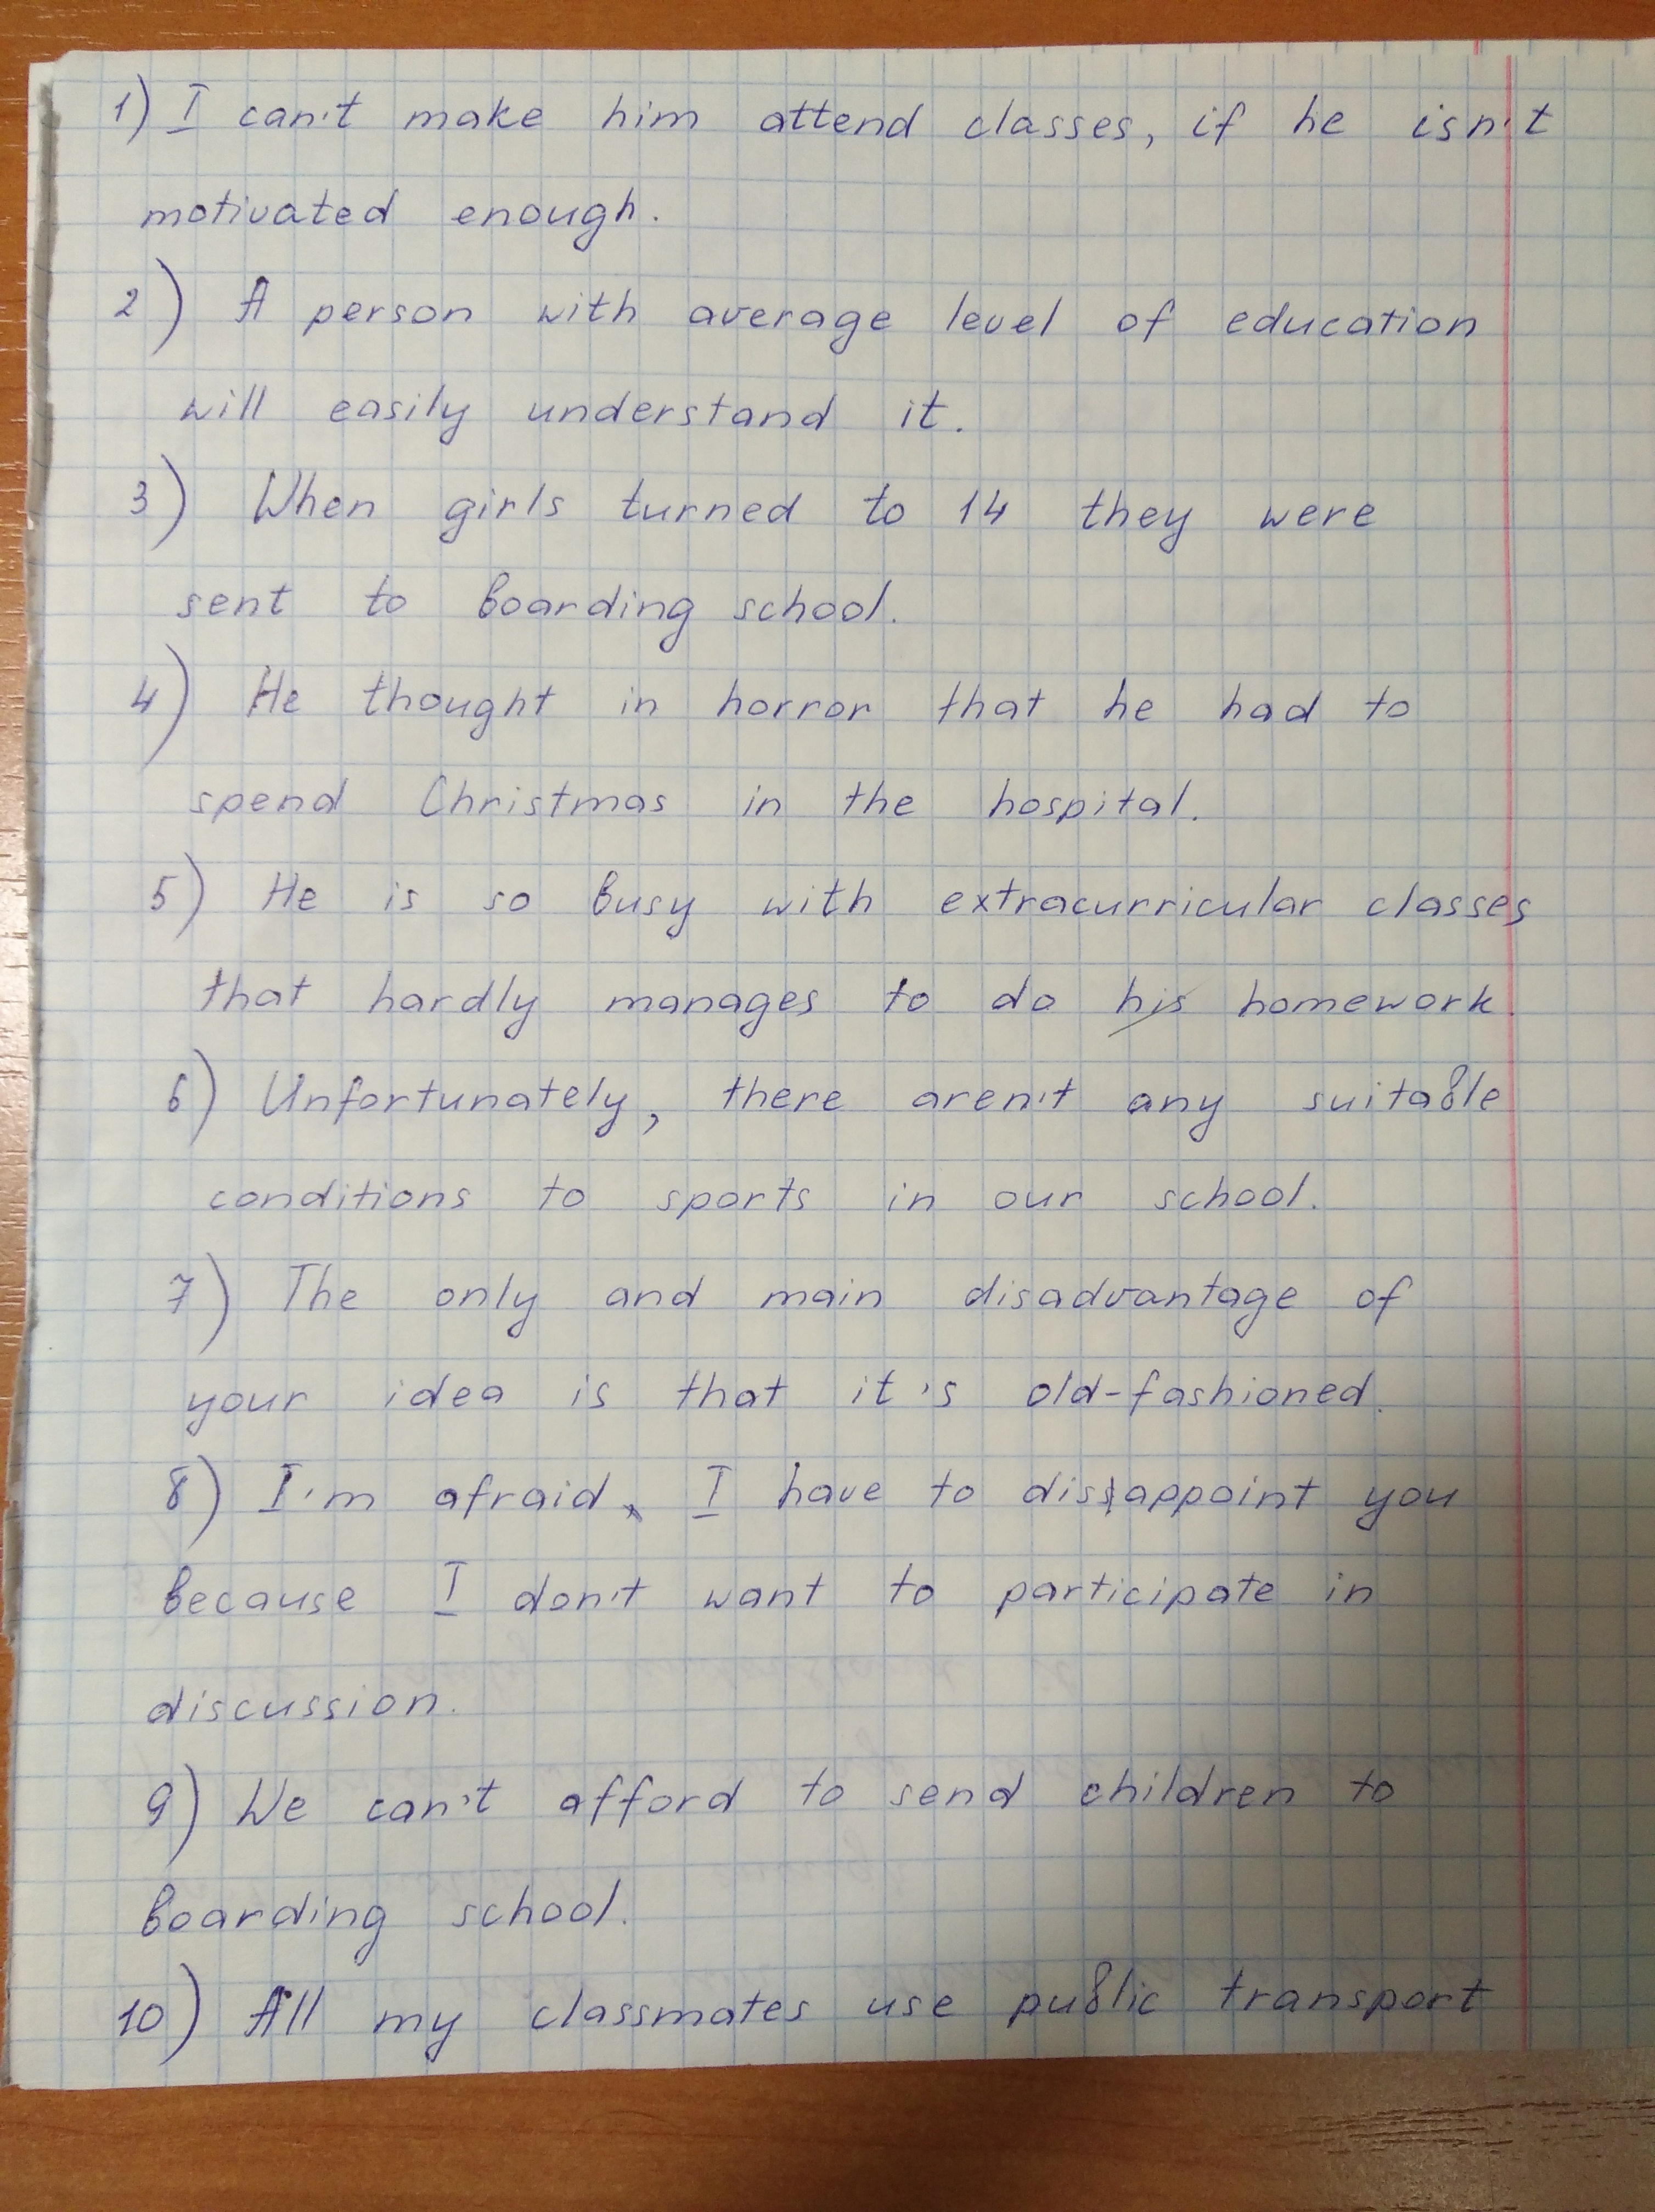 1) I can't make him attend classes, if he isn't
motivated enough.
2) A person with average level of education
will easily understand it.
3) When girls turned to 14 they were
sent to boarding school.
4) He thought in horror that he had to
spend Christmas in the hospital.
5) He is so busy with extracurricular classes
that hardly manages to do his homework.
6) Unfortunately, there aren't any suitable
conditions to sports in our school.
7) The only and main disadvantage of
your idea is that it's old-fashioned.
8) I'm afraid I have to disappoint you
because I don't want to participate in
discussion.
9) We can't afford to send children to
boarding school.
10) All my classmates use public transport